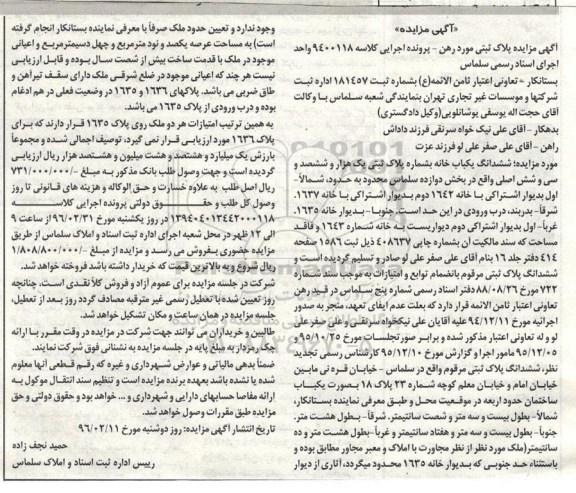 «آگهی مزایده»
آگهی مزایده پلاک ثبتی مورد رهن - پرونده اجرایی کلاسه ۹۴۰۰۱۱۸ واحد
اجرای اسناد رسمی سلماس
بستانکار - تعاونی اعتبار ثامن الائمه(ع) بشماره ثبت ۱۸۱۴۵۷ اداره ثبت
شرکتها و موسسات غیر تجاری تهران بنمایندگی شعبه سلماس با وکالت
آقای حجت اله یوسفی یوشانلویی(وکیل دادگستری)
بدهکار - آقای علی نیک خواه سرنقی فرزند داداش
راهن - آقای علی صفر علی لو فرزند عزت
مورد مزایده: ششدانگ یکباب خانه بشماره پلاک ثبتی یک هزار و ششصد و
سی و شش اصلی واقع در بخش دوازده سلماس محدود به حدود، شمالاً-
اول بدیوار اشتراکی با خانه ۱۶۴۲ دوم بدیوار اشتراکی با خانه ۱۶۳۷.
شرقاً- بدربند، درب ورودی در این حد است. جنوباً- بدیوار خانه ۱۶۳۵.
غرباً- اول بدیوار اشتراکی دوم دیواریست به خانه شماره ۱۶۴۳ و فاقد
مساحت که سند مالکیت آن بشماره چاپی ۴۰۸۶۳۷ ذیل ثبت ۱۵۸۶ صفحه
۴۱۴ دفتر جلد ۱۶ بنام آقای علی صفر علی لو صادر و تسلیم گردیده است و
ششدانگ پلاک ثبتی مرقوم بانضمام توابع و امتیازات به موجب سند شماره
۷۲۲ مورخ ۸۸/۰۸/۲۶ دفتر اسناد رسمی شماره پنج سلماس در قید رهن
تعاونی اعتبار ثامن الائمه قرار دارد که بعلت عدم ایفای تعهد، منجر به صدور
اجرائیه مورخ ۹۴/۱۲/۱۱ علیه آقایان علی نیکخواه سرنقی و علی صفر علی
لو و له تعاونی اعتبار مذکور شده و برابر صورتجلسات مورخ ۹۵/۰۲/۲۵ و
۹۵/۱۲/۰۵ مامور اجرا و گزارش مورخ ۹۵/۱۲/۱۰ کارشناس رسمی تجدید
نظر، ششدانگ پلاک ثبتی مرقوم واقع در سلماس - خیابان قره نی مابین
خیابان امام و خیابان معلم کوچه شماره ۲۳ پلاک ۱۸ بصورت یکباب
ساختمان حدود اربعه در موقعیت محل و طبق معرفی نماینده بستانکار،
شمالاً- بطول بیست و سه متر و شصت سانتیمتر. شرقاً- بطول هشت متر.
جنوباً- بطول بیست و سه متر و هفتاد سانتیمتر و غرباً- بطول هشت متر و ده
سانتیمتر(ملک مورد نظر از نظر مجاورت با املاک و معبر مجاور مطابق بوده و
باستثناء حد جنوبی که بدیوار خانه ۱۶۳۵ محدود میگردد، آثاری از دیوار
وجود ندارد و تعیین حدود ملک صرفاً با معرفی نماینده بستانکار انجام گرفته
است) به مساحت عرصه یکصد و نود مترمربع و چهل دسیمترمربع و اعیانی
موجود در ملک با قدمت ساخت بیش از شصت سال بوده و قابل ارزیابی
نیست هر چند که اعیانی موجود در ضلع شرقی ملک دارای سقف تیرآهن و
طاق ضربی می باشد. پلاکهای ۱۶۳۶ و ۱۶۳۵ در وضعیت فعلی در هم ادغام
بوده و درب ورودی از پلاک ۱۶۳۵ می باشد.
به همین ترتیب امتیازات هر دو ملک روی پلاک ۱۶۳۵ قرار دارند که برای
پلاک ۱۶۳۶ مورد ارزیابی قرار نمی گیرد، توصیف اجمالی شده و مجموعاً
بارزش یک میلیارد و هشتصد و هشت میلیون و هشتصد هزار ریال ارزیابی
گردیده است و جهت وصول طلب بانک مذکور به مبلغ -/۷۳۱/۰۰۰/۰۰۰
ریال اصل طلب به علاوه خسارت و حق الوکاله و هزینه های قانونی تا روز
وصول کل طلب و حقوق دولتی پرونده اجرایی کلاسه
۱۳۹۴۰۴۰۱۳۴۴۲۰۰۰۱۱۸ در روز یکشنبه مورخ ۹۶/۰۲/۳۱ از ساعت ۹
الی ۱۲ ظهر در محل شعبه اجرای اداره ثبت اسناد و املاک سلماس از طریق
مزایده حضوری بفروش می رسد و مزایده از مبلغ -/۱/۸۰۸/۸۰۰/۰۰۰
ریال شروع و به بالاترین قیمت که خریدار داشته باشد فروخته خواهد شد.
شرکت در جلسه مزایده برای عموم آزاد و فروش کلاً نقدی است. چنانچه
روز تعیین شده با تعطیل رسمی غیر مترقبه مصادف گردد روز بعد از تعطیل،
جلسه مزایده در همان ساعت و مکان تشکیل خواهد شد.
طالبین و خریداران می توانند جهت شرکت در مزایده در وقت مقرر با ارائه
چک رمزدار به مبلغ پایه در جلسه مزایده به نشانی فوق شرکت نمایند.
ضمناً بدهی مالیاتی و عوارض شهرداری و غیره که رقم قطعی آنها معلوم
شده یا نشده باشد بعهده برنده مزایده است و تنظیم سند انتقال موکول به
ارائه مفاصا حسابهای دارایی و شهرداری و ... خواهد بود و حقوق دولتی و حق
مزایده طبق مقررات وصول خواهد شد.
تاریخ انتشار آگهی مزایده: روز دوشنبه مورخ ۹۶/۰۲/۱۱
حمید نجف زاده
رییس اداره ثبت اسناد و املاک سلماس